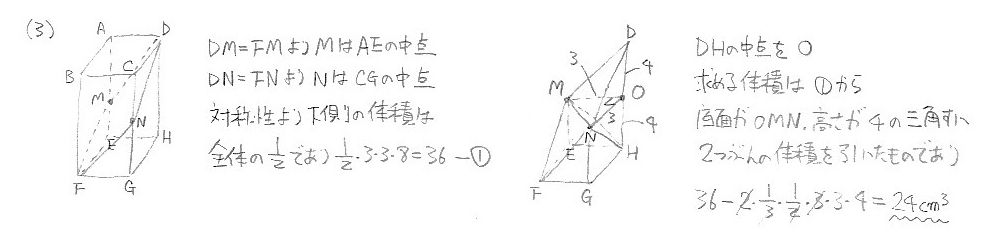 (3)
A D
B C
M
N
E H
F G
DM=FMよりMはAEの中点
DN=FNよりNはCGの中点
対称性より下側の体積は
全体の1/2であり 1/2・3・3・8=36 ―①
D
3 4
M O
3
N 4
E H
F G
DHの中点をO
求める体積は①から
底面がOMN、高さが4の三角すい
2つぶんの体積を引いたものであり
36-2・1/3・1/2・3・3・4=24cm³